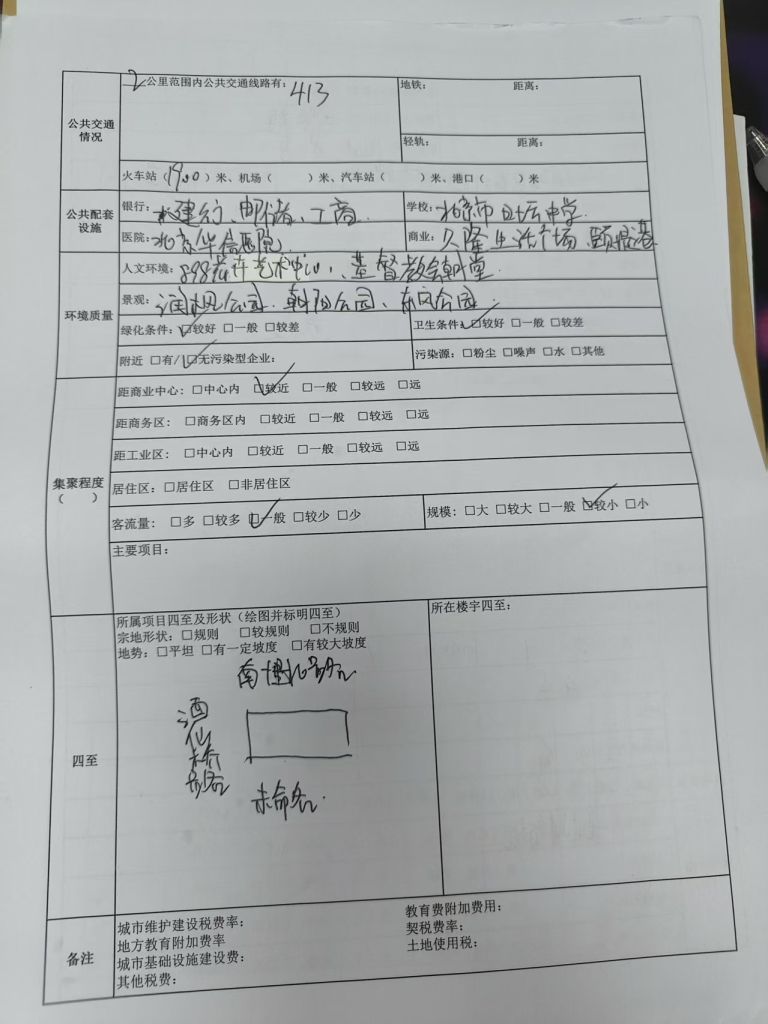 2公里范围内公共交通线路有：413
地铁： 距离：
公共交通情况
轻轨： 距离：
火车站（1900）米、机场（ ）米、汽车站（ ）米、港口（ ）米
公共配套设施
银行：建行、邮储、工商
学校：北京市日坛中学
医院：北京华信医院
商业：久隆生活广场、颐堤港
环境质量
人文环境：898花卉艺术中心、基督教会朝堂
景观：公园、朝阳公园、东风公园
绿化条件：☑较好 □一般 □较差
卫生条件：☑较好 □一般 □较差
附近 □有/☑无污染型企业：
污染源：□粉尘 □噪声 □水 □其他
集聚程度（ ）
距商业中心：□中心内 ☑较近 □一般 □较远 □远
距商务区： □商务区内 □较近 □一般 □较远 □远
距工业区：□中心内 □较近 □一般 □较远 □远
居住区：□居住区 □非居住区
客流量： □多 □较多 ☑一般 □较少 □少
规模：□大 □较大 □一般 ☑较小 □小
主要项目：
四至
所属项目四至及形状（绘图并标明四至）
宗地形状：□规则 □较规则 □不规则
地势：□平坦 □有一定坡度 □有较大坡度
所在楼宇四至：
南十里居路
酒仙桥路
未命名
备注
城市维护建设税费率：
教育费附加费用：
地方教育附加费率
契税费率：
城市基础设施建设费：
土地使用税：
其他税费：